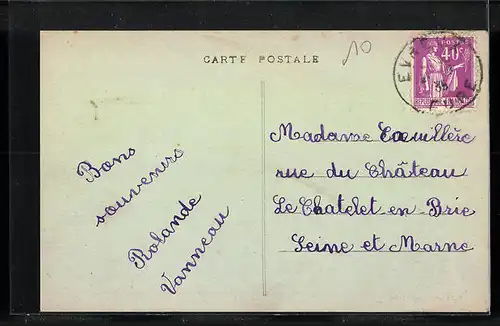 CARTE POSTALE
10
POSTES
40c
Bons
souvenirs
Rolande
Vanneau
Madame
rue du Château
Le Chatelet en Brie
Seine et Marne